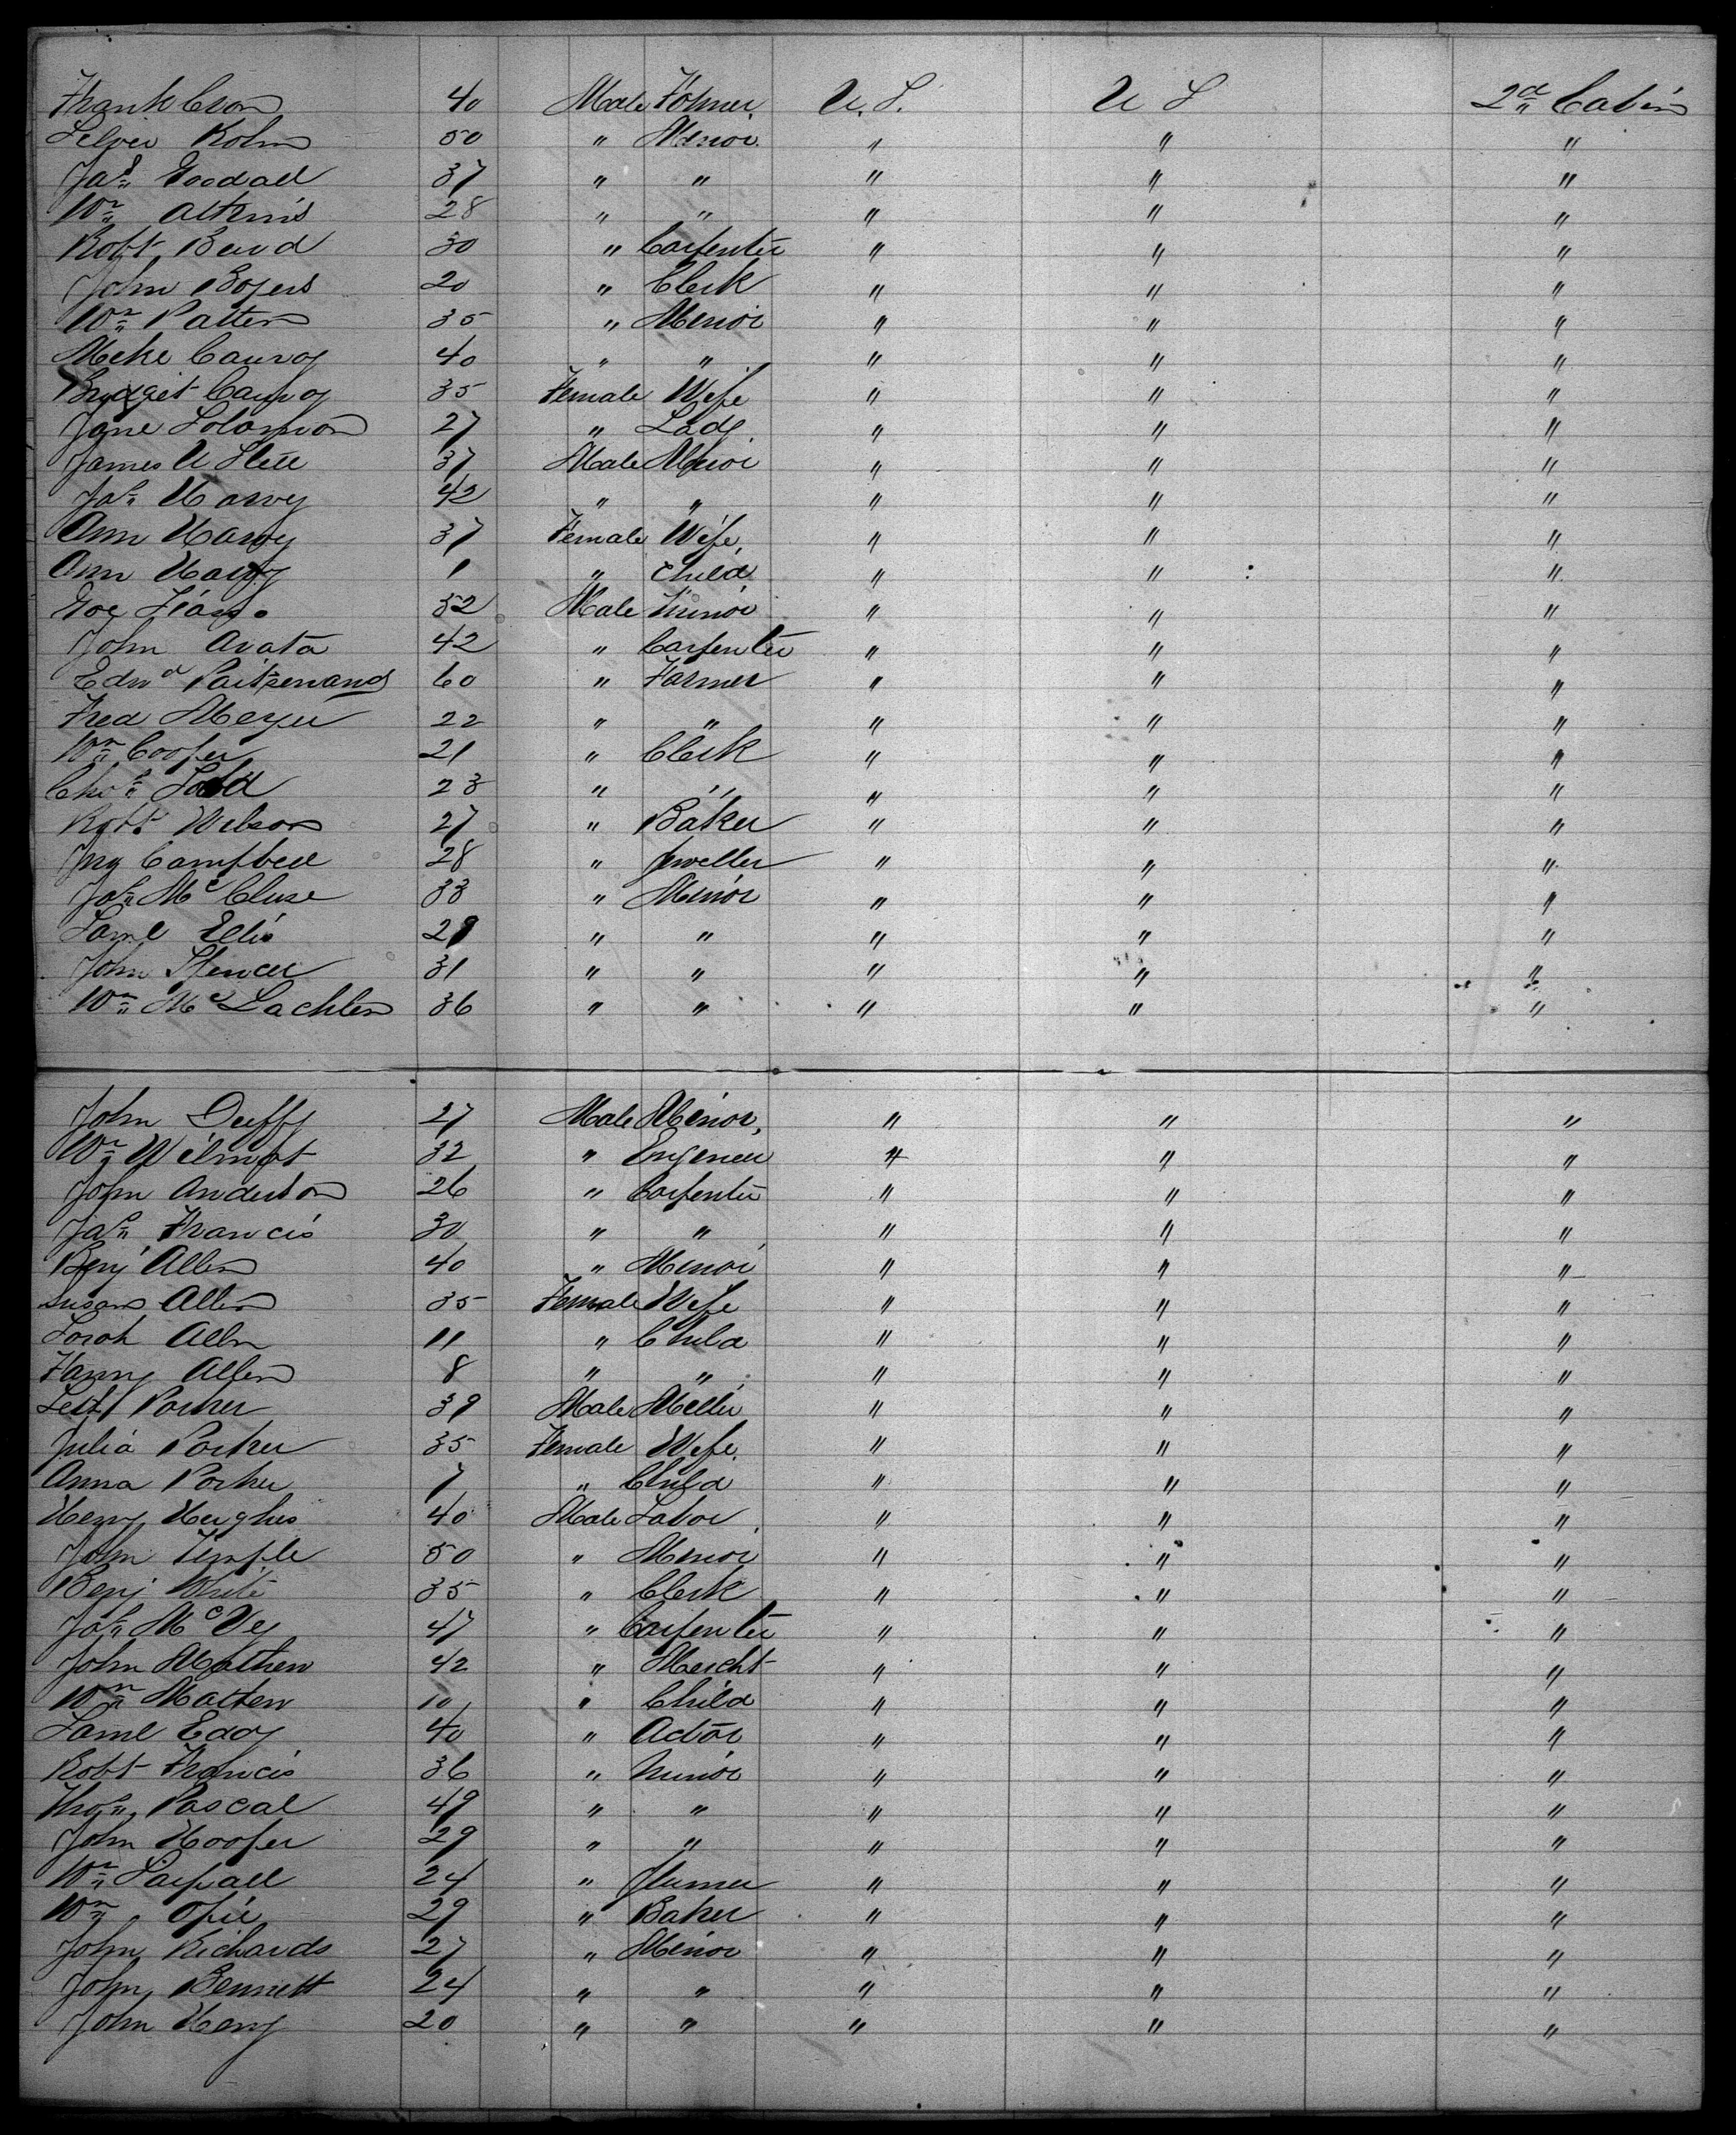 Frank 40 Male Farmer U. S. U S 2d Cabin
50 " Menor " " "
Jas Goodall 37 " " " " "
Wm Atkins 28 " " " " "
Robt 30 " Carpenter " " "
John Rogers 20 " Clerk " " "
Wm Patten 35 " Menor " " "
Mike Conroy 40 " " " " "
Bridget Conroy 35 Female Wife " " "
Jane Solomon 27 " Lady " " "
James 37 Male Menor " " "
Jas Harvy 42 " " " " "
Ann Harvy 37 Female Wife, " " "
Ann Harvy 1 " Child " " "
Male Minor " " "
John Avata 42 " Carpenter " " "
Edwd 60 " Farmer " " "
Fred Meyer 22 " " " " "
Wm Cooper 21 " Clerk " " "
Chas Todd 23 " " " " "
Robt Wilson 27 " Baker " " "
Jny Campbell 28 " Jweller " " "
Jas Mc Clure 33 " Menor " " "
Saml Ellis " " " " "
John Spencer 31 " " " " "
Wm Mc Lachlen 36 " " " " "
John Duffy 27 Male Menor, " " "
Wm Wilmot 32 " Engeneer " " "
John Anderson 26 " Carpenter " " "
Jas Francis 30 " " " " "
Benj Allen 40 " Menor " " "
Susan Allen 35 Female Wife " " "
Sarah Allen 11 " Child " " "
Fanny Allen 8 " " " " "
Parker 39 Male Meller " " "
Julia Parker 35 Female Wife. " " "
Anna Parker 7 " Child " " "
Henry Hughes 40 Male Labor " " "
John Temple 50 " Menor " " "
Benj White 35 " Clerk " " "
Jas Mc Vey 47 " Carpenter " " "
John Mathew 42 " Mercht " " "
Wm Mathew 10 " Child " " "
Saml Eddy 40 " Actor " " "
Robt Francis 36 " Minor " " "
Thos Pascal 49 " " " " "
John Hooper 29 " " " " "
Wm 24 " " " "
Wm Opie 29 " Baker " " "
John Richards 27 " Menor " " "
John Bennett 24 " " " " "
John Henry 20 " " " " "